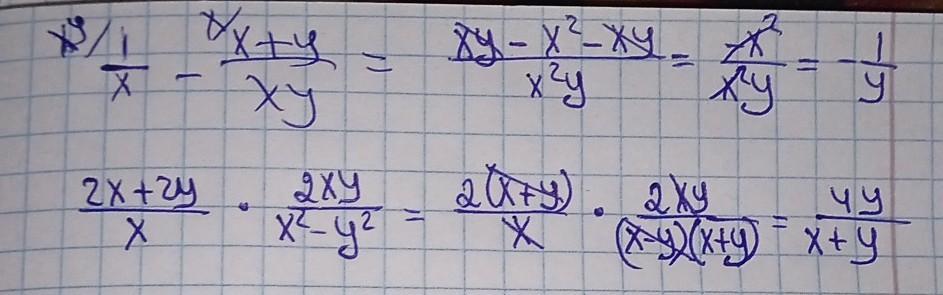 xy/ 1/x - x/ (x+y)/(xy) = (xy - x² - xy)/(x²y) = -x²/(x²y) = -1/y
(2x+2y)/x · 2xy/(x²-y²) = 2(x+y)/x · 2xy/((x-y)(x+y)) = 4y/(x+y)